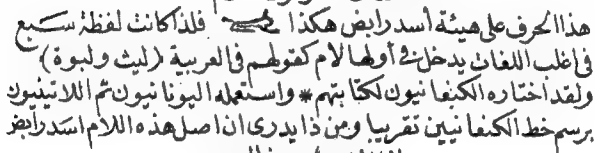 هذا الحرف على هيئة أسد رابض هكذا فلذا كانت لفظة سبع
في أغلب اللغات يدخل في أولها لام كقولهم في العربية (ليث ولبوة)
ولقد اختاره الكنعانيون لكتابتهم * واستعمله اليونانيون ثم اللاتينيون
برسم خط الكنعانيين تقريبا ومن ذا يدرى ان اصل هذه اللام اسد رابض